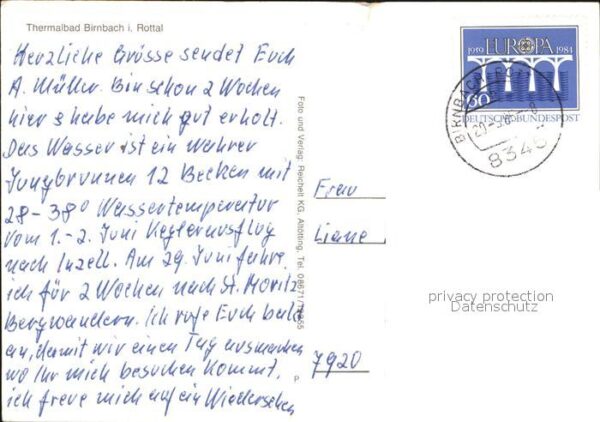 Thermalbad Birnbach i. Rottal
Herzliche Grüsse sendet Euch
A. Müller. Bin schon 2 Wochen
hier & habe mich gut erholt.
Das Wasser ist ein wahrer
Jungbrunnen 12 Becken mit
28-38° Wassertemperatur
vom 1.-2. Juni Keglerausflug
nach Inzell. Am 29. Juni fahre
ich für 2 Wochen nach St. Moritz
Bergwandern. Ich rufe Euch bald
an, damit wir einen Tag ausmachen
wo Ihr mich besuchen kommt.
ich freue mich auf ein Wiedersehen
Foto und Verlag: Reichelt KG, Altötting, Tel. 08671/
P
1959 EUROPA 1984
60
DEUTSCHE BUNDESPOST
BIRNBACH
8345
Frau
Liane
7920
privacy protection
Datenschutz